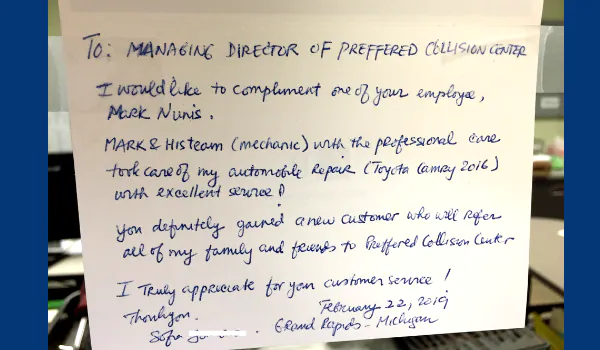 To: MANAGING DIRECTOR OF PREFFERED COLLISION CENTER
I would like to compliment one of your employee,
MARK NUNIS.
MARK & His team (mechanic) with the professional care
took care of my automobile Repair (Toyota Camry 2016)
with excellent service!
you definitely gained a new customer who will refer
all of my family and friends to Preffered Collision Center
I Truly appreciate for your customer service!
Thankyou.
February 22, 2019
Sofia
Grand Rapids - Michigan